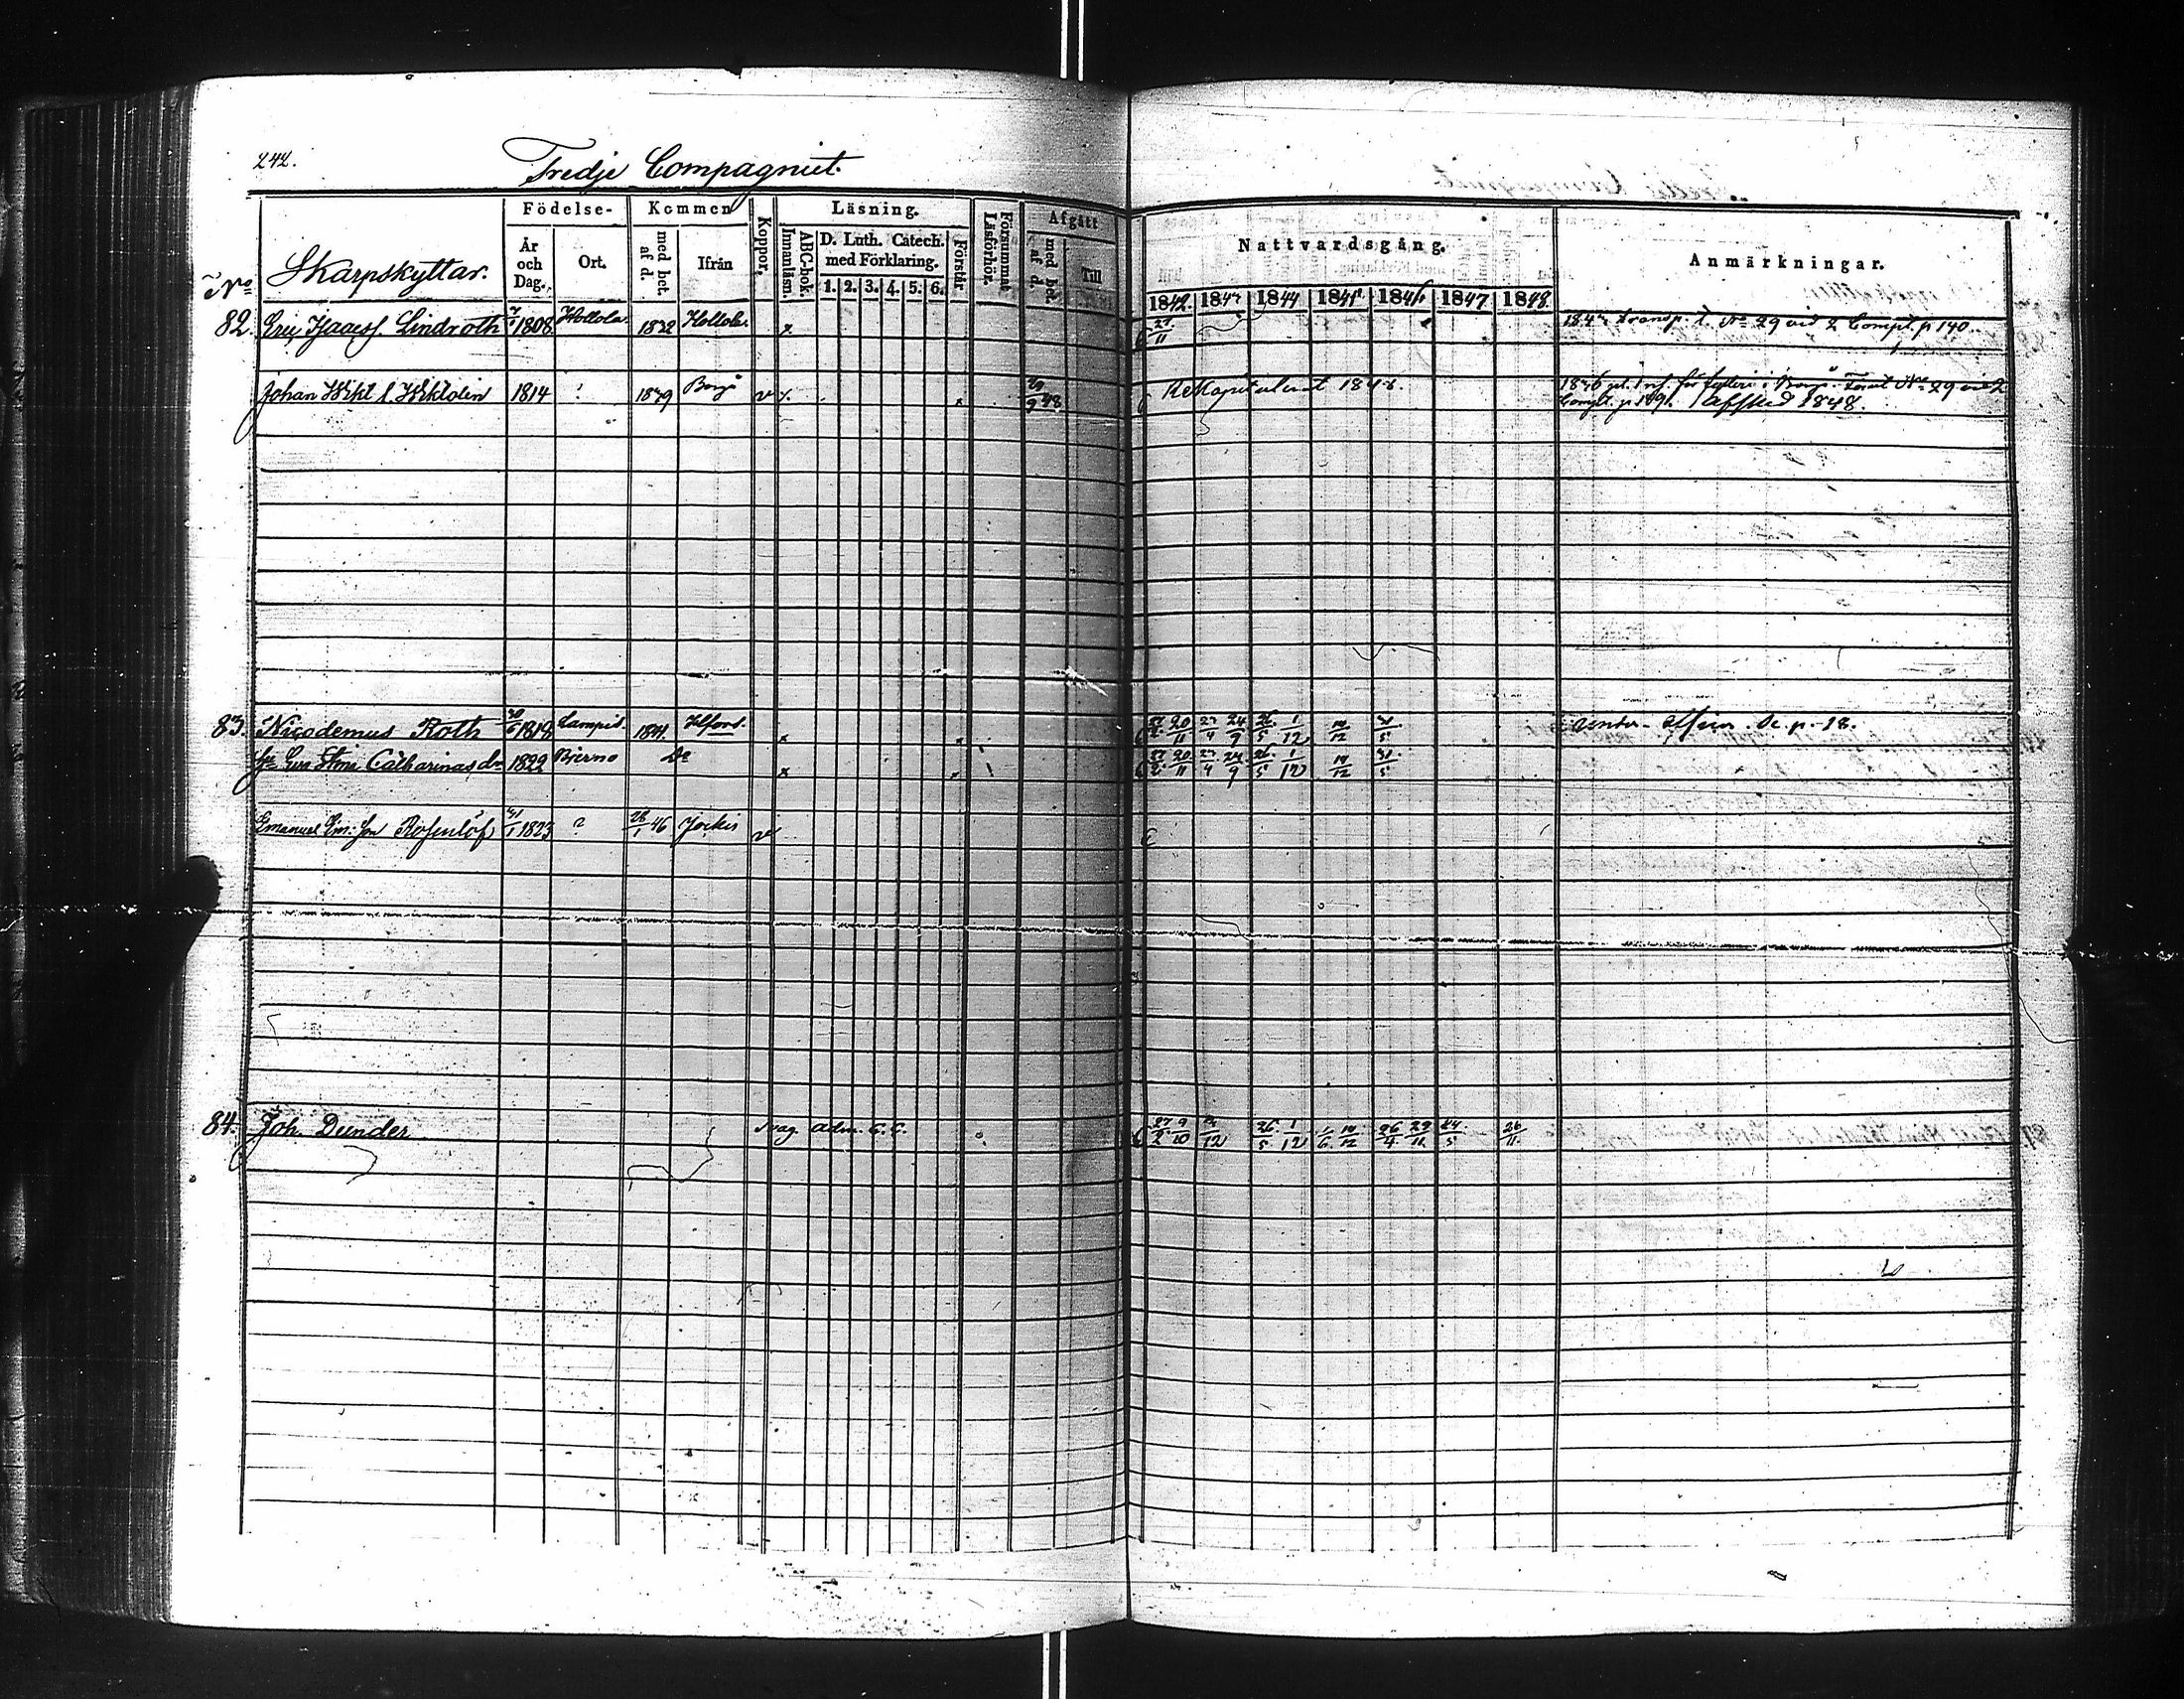 242.
Tredje Compagniet.
No Skarpskyttar. Födelse- År och Dag. Ort. Kommen med bet. af d. Ifrån Koppor. Läsning. ABC-bok. Innanläsn. D. Luth. Catech. med Förklaring. 1. 2. 3. 4. 5. 6. Förstår Försummat Läsförhör. Afgått med bet. af d. Till Nattvardsgång. 1842 1843 1844 1845 1846 1847 1848 Anmärkningar.
82. Eric Isaacss. Lindroth 1808 Hollola 1822 Hollola x 27/11 1843 transp. t. No 29 vid 2 Compt. p 140.
Johan Wikt. s. Wiktolin 1814 ? 1839 Borgå v x x 29/9 48 Rekapitulerat 1846. 1846 för No 29 vid 2
Compt. p 191. Afsked 1848.
83. Nicodemus Roth 30/6 1819 Lampis. 1841. Hfors. x x 27/2 20/11 23/4 24/9 26/5 1/12 14/12 31/5 Under-officer. Se. p. 18.
Catharinas dr 1822 Bjerno Do x x 27/2 20/11 23/4 24/9 26/5 1/12 14/12 31/5
Emanuel Em:son Rosenlöf 31/1 1823 ? 28/1 46 Jockis v
84. Joh. Dunder svag adm. C. C. 27/2 9/10 3/12 26/5 1/12 1/6 14/12 26/4 29/11 24/5 26/11